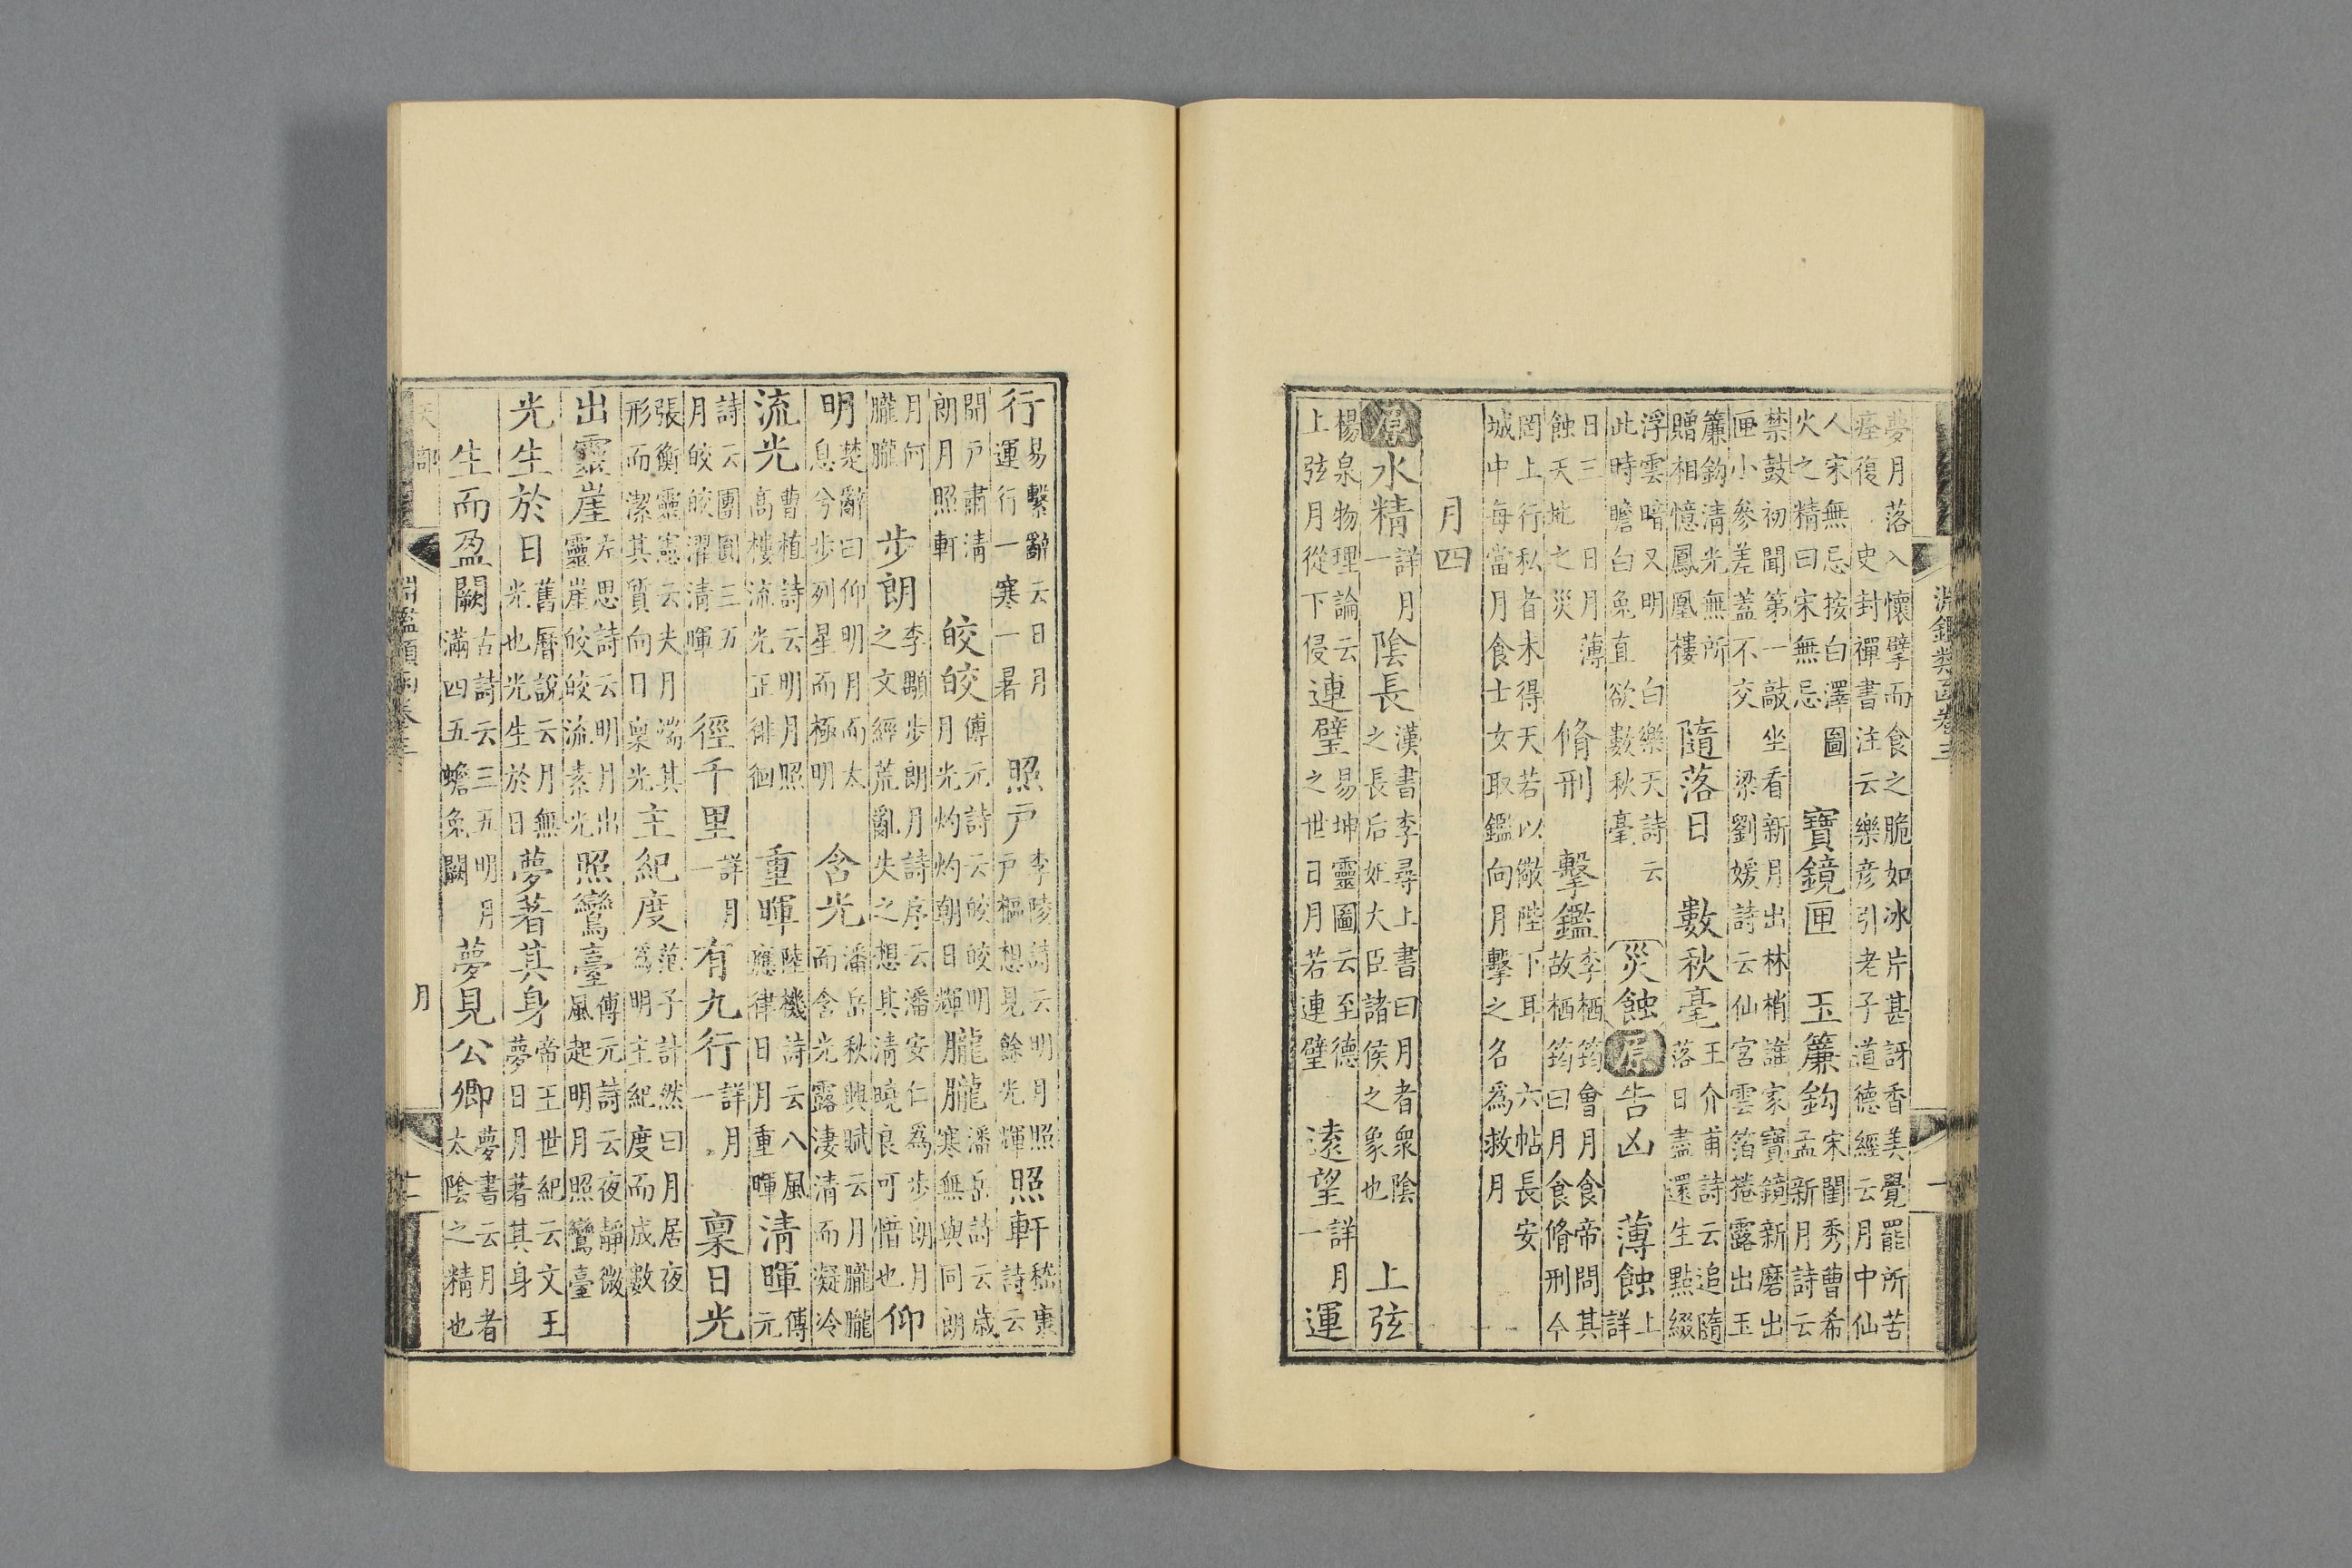 夢月落入懷擘而食之脆如冰片甚訝香美覺罷所苦痊復 史封禪書注云樂彥引老子道德經云月中仙
人宋無忌按白澤圖火之精曰宋無忌 寶鏡匣 玉簾鈎宋閨秀曹希孟新月詩云
禁鼓初聞第一敲坐看新月出林梢誰家寶鏡新磨出匣小參差蓋不交 梁劉媛詩云仙宮雲箔捲露出玉
簾鈎清光無所贈相憶鳳凰樓 隨落日 數秋毫王介甫詩云追隨落日盡還生點綴
浮雲暗又明 白樂天詩云此時瞻白兔直欲數秋毫 災蝕 原 告凶 薄蝕上詳
日三日月薄蝕天地之災 脩刑 擊鑑李栖筠會月食帝問其故栖筠曰月食脩刑今
罔上行私者未得天若以儆陛下耳 六帖長安城中每當月食士女取鑑向月擊之名爲救月
月四
原 水精詳月一 陰長漢書李尋上書曰月者衆陰之長后妃大臣諸侯之象也 上弦
楊泉物理論云上弦月從下侵 連璧易坤靈圖云至德之世日月若連璧 遠望詳月一 運
淵鑑類函卷三
行易繫辭云日月運行一寒一暑 照戶李陵詩云明月照戶樞想見餘光輝 照軒嵇康詩云
閑戶肅清朗月照軒 皎皎傅元詩云皎皎明月光灼灼朝日輝 朧朧潘岳詩云歲寒無與同朗
月何朧朧 步朗李顒步朗月詩序云潘安仁爲步朗月之文經荒亂失之想其清曉良可惜也 仰
明楚辭曰仰明月而太息兮步列星而極明 含光潘岳秋興賦云月朧朧而含光露淒清而凝冷
流光曹植詩云明月照高樓流光正徘徊 重暉陸機詩云八風應律日月重暉 清暉傅元
詩云團團三五月皎皎濯清暉 徑千里詳月一 有九行詳月一 稟日光
張衡靈憲云夫月端其形而潔其質向日稟光 主紀度范子計然曰月居夜爲明主紀度而成數
出靈崖左思詩云明月出靈崖皎皎流素光 照鸞臺傅元詩云夜靜微風起明月照鸞臺
光生於日舊曆說云月無光也光生於日 夢著其身帝王世紀云文王夢日月著其身
生而盈闕古詩云三五明月滿四五蟾兔闕 夢見公卿夢書云月者太陰之精也
天部 淵鑑類函卷三 月